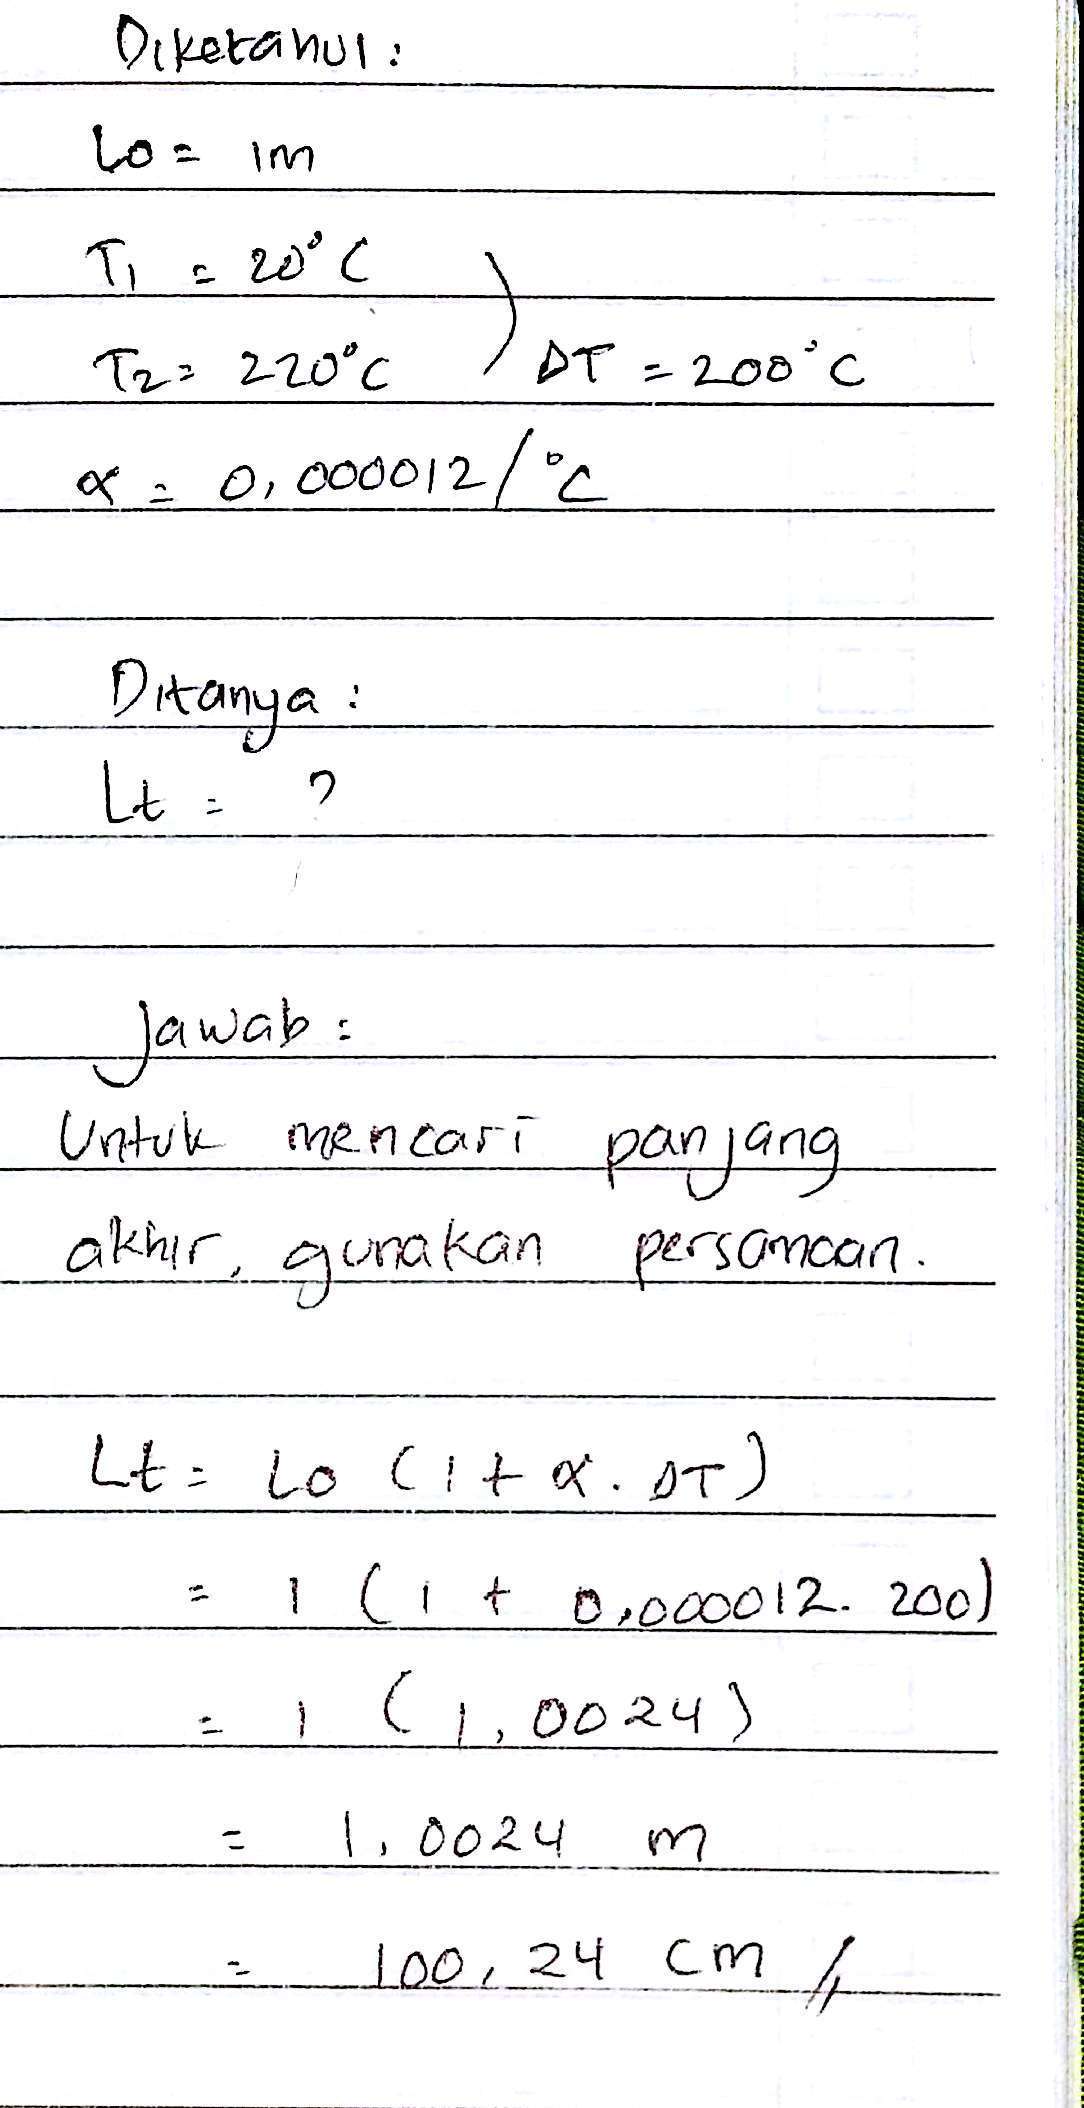 Diketahui :
Lo = 1m
T1 = 20°C
T2 = 220°C ) ΔT = 200°C
α = 0,000012/°C
Ditanya :
Lt = ?
Jawab :
Untuk mencari panjang
akhir, gunakan persamaan.
Lt = Lo (1 + α . ΔT)
= 1 (1 + 0,000012. 200)
= 1 (1,0024)
= 1,0024 m
= 100,24 cm //